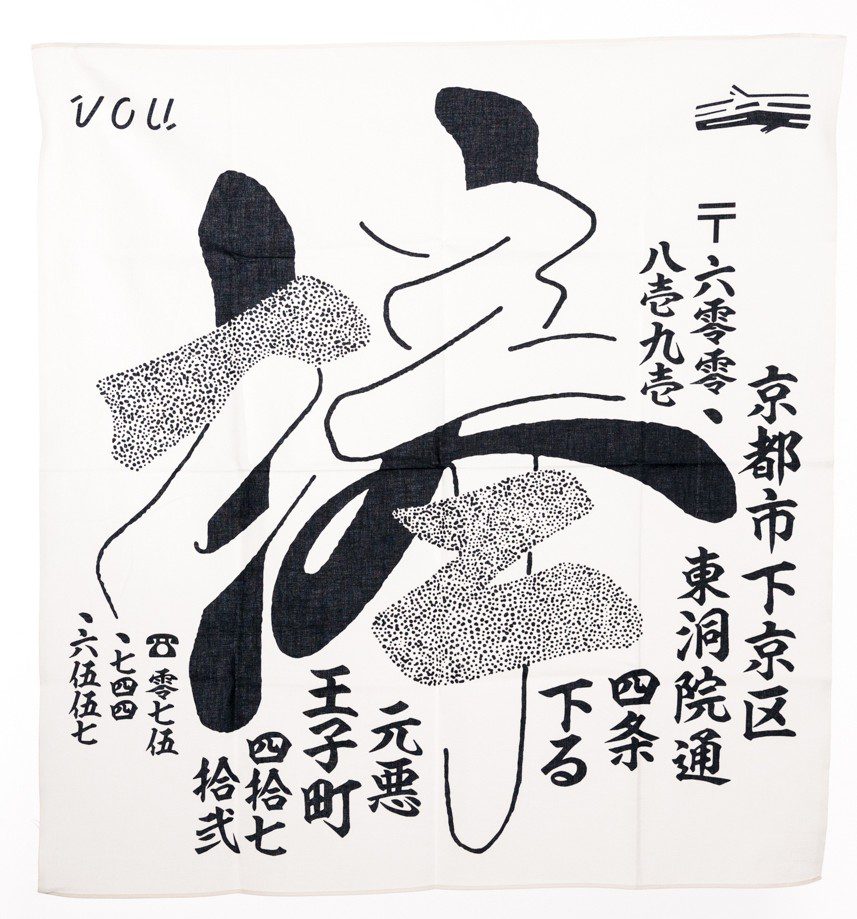 VOU
棒
〒六零零、
八壱九壱
京都市下京区
東洞院通
四条
下る
元悪
王子町
四拾七
拾弐
☎零七伍
、七四四
、六伍伍七